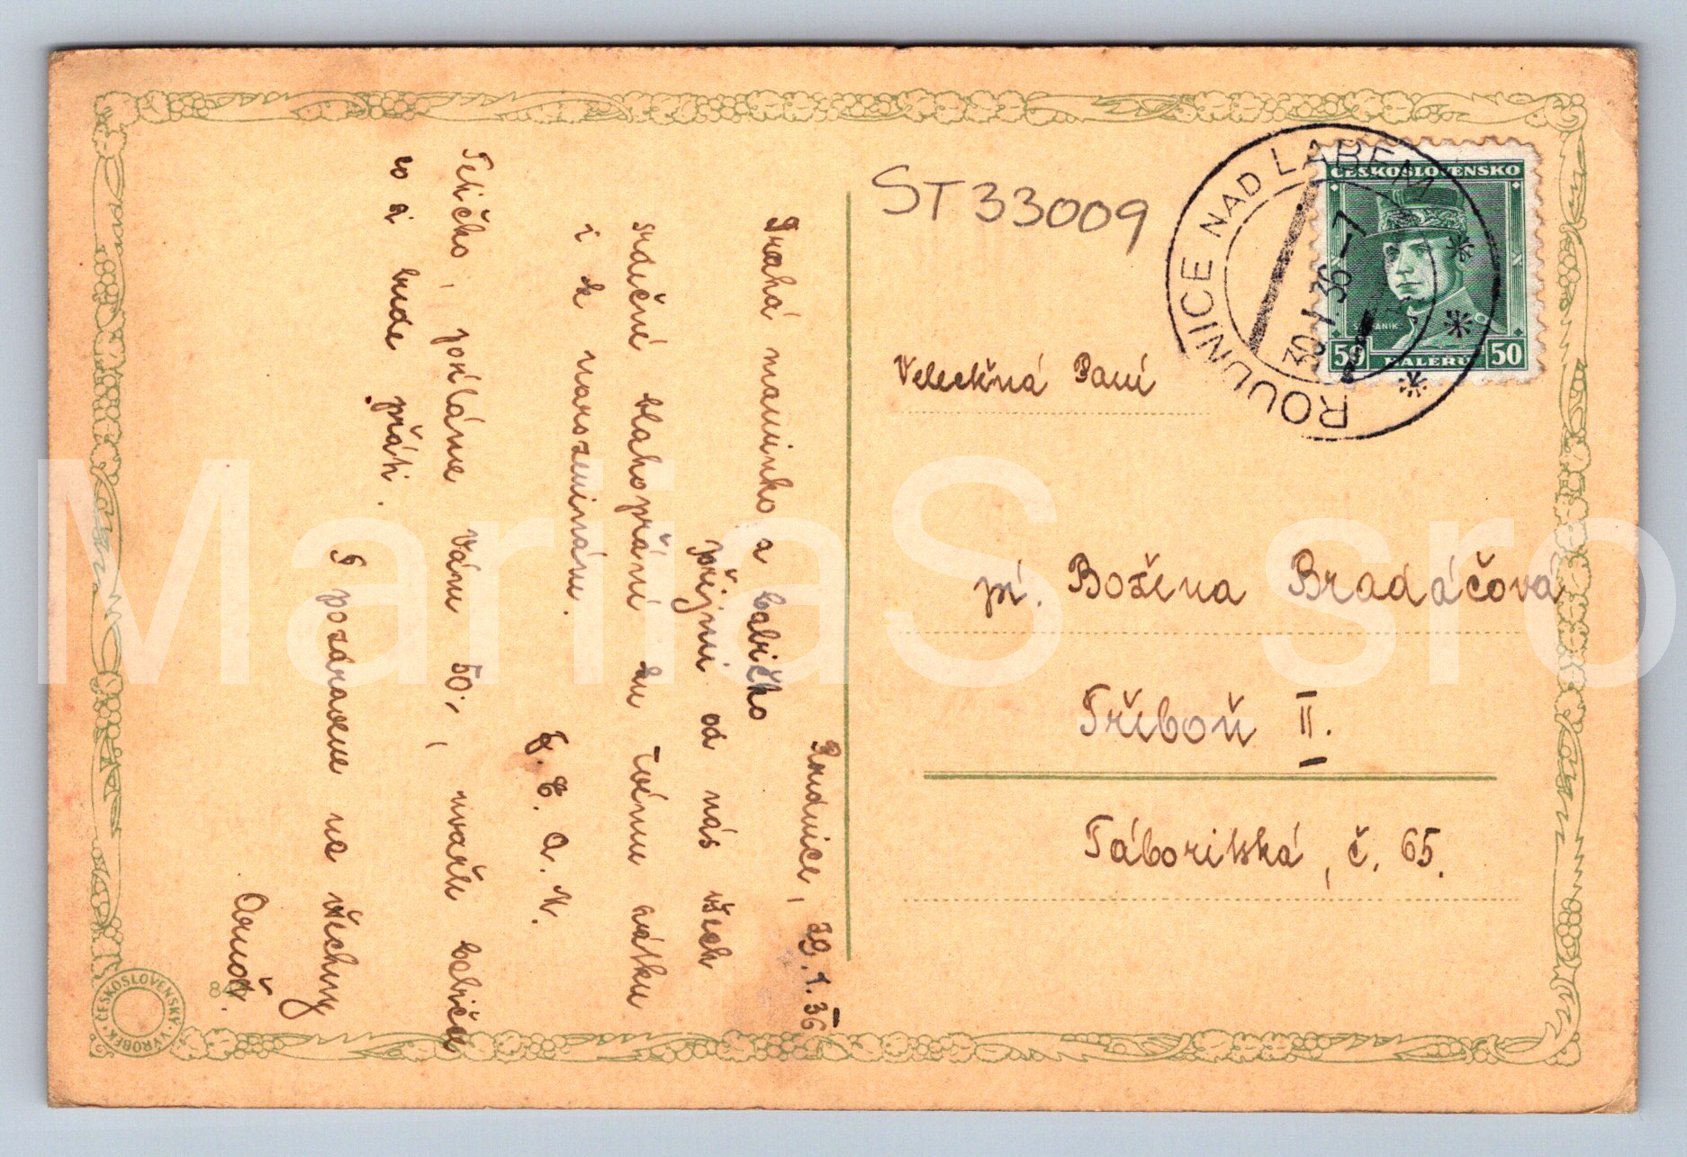 ST33009
ROUDNICE NAD LABEM
30.I.36-7
ČESKOSLOVENSKO
ŠTEFÁNIK
50 HALÉŘŮ 50
Veleckěná Paní
pí. Božena Bradáčová
Třeboň II.
Táboritská, č. 65.
Roudnice, 29.1.36
Drahá maminko a babičko
přijmi od nás všech
srdečné blahopřání ku Tvému svátku
i k narozeninám.
E. A.
posíláme Vám 50,-, uvaři babičce
co á bude přáti.
S pozdravem na všechny
ČESKOSLOVENSKÝ VÝROBEK
MariiaS sro